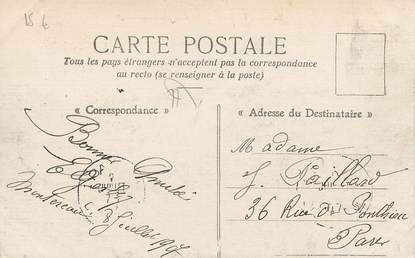 15 €
CARTE POSTALE
Tous les pays étrangers n'acceptent pas la correspondance
au recto (se renseigner à la poste)
« Correspondance »
« Adresse du Destinataire »
Bonne Année
Juillet 1907
Madame
J. Paillard
36 Rue de Ponthieu
Paris